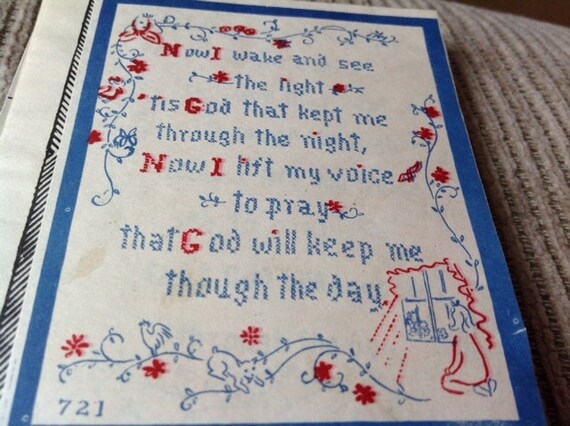 Now I wake and see
the light
'tis God that kept me
through the night,
Now I lift my voice
to pray
that God will keep me
though the day.
721